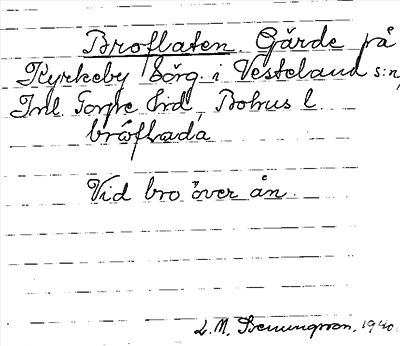 Broflaten. Gärde på
Kyrkeby börg. i Vesteland s:n,
Inl Torpe hrd, Bohus l.
bröflada
Vid bro över ån.
L. M. Svenungsson. 1940.